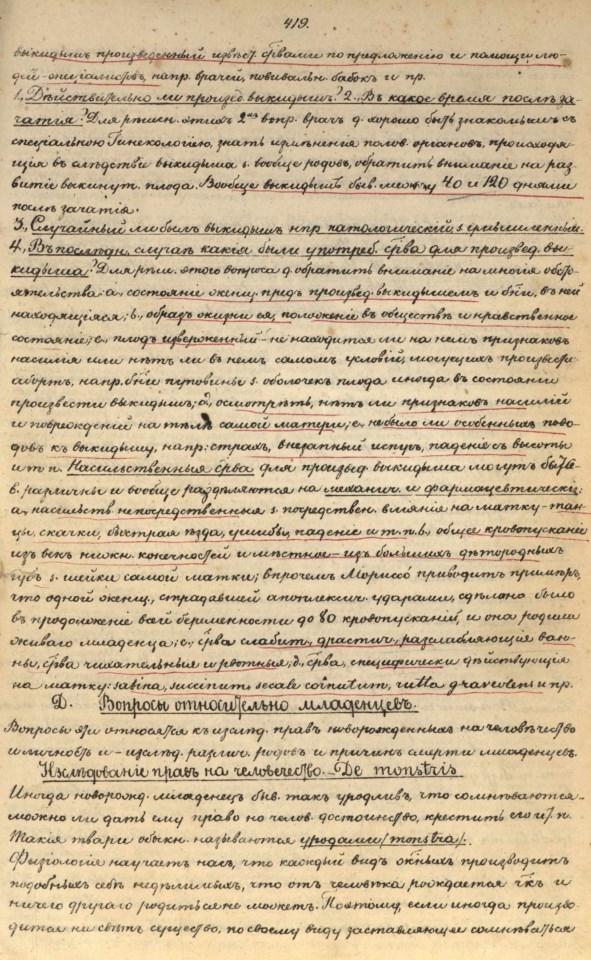 419.
выкидышъ произведенный извѣст. ср̃вами по предложенію и помощи лю-
дей-спеціалистовъ, напр. врачей, повивальн. бабокъ и пр.
1, Дѣйствительно ли произвед. выкидышъ? 2., Въ какое время послѣ за-
чатія? Для рѣшен. этихъ 2ухъ вопр. врачъ д. хорошо быть знакомымъ съ
спеціальною Гинекологіею, знать измѣненія полов. органовъ, происходя-
щія въ слѣдствіи выкидыша s. вообще родовъ, обратить вниманіе на раз-
витіе выкинут. плода. Вообще выкидышъ быв. между 40 и 120 днями
послѣ зачатія.
3., Случайный ли былъ выкидышъ нпр патологическій s.
4., Въ послѣдн. случаѣ какія были употреб. ср̃ва для произвед. вы-
кидыша? Для рѣш. этого вопроса д. обратить вниманіе на многія обсто-
ятельства: a, состояніе женщ. предъ произвед. выкидышемъ и въ ней
находящіяся; b, образъ жизни ея, положеніе въ обществѣ и нравственное
состояніе; c, плодъ изверженный - не находится ли на немъ признаковъ
насилія или нѣтъ ли въ немъ самомъ условій, могущихъ произвести
абортъ, напр. пуповины s. оболочекъ плода иногда въ состояніи
произвести выкидышъ; d, осмотрѣть, нѣтъ ли признаковъ насилій
и поврежденій на тѣлѣ самой матери; e, не было ли особенныхъ пово-
довъ къ выкидышу, напр: страхъ, внезапный испугъ, паденіе съ высоты
и т п. Насильственныя ср̃ва для произвед. выкидыша могутъ быть
в. различны и вообще раздѣляются на механич. и фармацевтическія:
a, насильств непосредственныя s. посредствен. вліянія на матку-тан-
цы, скачки, быстрая ѣзда, ушибы, паденіе и т. п. b, общее кровопусканіе
изъ венъ нижн. конечностей и мѣстное - изъ большихъ дѣтородныхъ
губъ s. шейки самой матки; впрочемъ Морисо приводитъ примѣръ,
что одной женщ., страдавшей апоплексич. ударами, сдѣлано было
въ продолженіе всей беременности до 80 кровопусканій, и она родила
живаго младенца; c, ср̃ва слабит., драстич., разслабляющія ван-
ны, ср̃ва чихательныя и рвотныя; d, ср̃ва, специфически дѣйствующія
на матку: sabina, succinum, secale cornutum, rutta graveolens и пр.
D. Вопросы относительно младенцевъ.
Вопросы эти относятся къ изслѣд. правъ новорожденныхъ на человѣчество
и личность и - изслѣд. различ. родовъ и причинъ смерти младенцевъ.
Изслѣдованіе правъ на человѣчество. - De monstris
Иногда новорожд. младенецъ быв. такъ уродливъ, что сомнѣваются-
можно ли дать ему право на челов. достоинство, крестить его и т. п.
Такія твари обыкн. называются уродами (monstra).
Физіологія научаетъ насъ, что каждый видъ производитъ
подобныхъ себѣ недѣлимыхъ, что отъ человѣка рождается ч̃къ и
ничего другаго родиться не можетъ. Поэтому, если иногда произво-
дится на свѣтъ существо, по своему виду заставляющее сомнѣваться